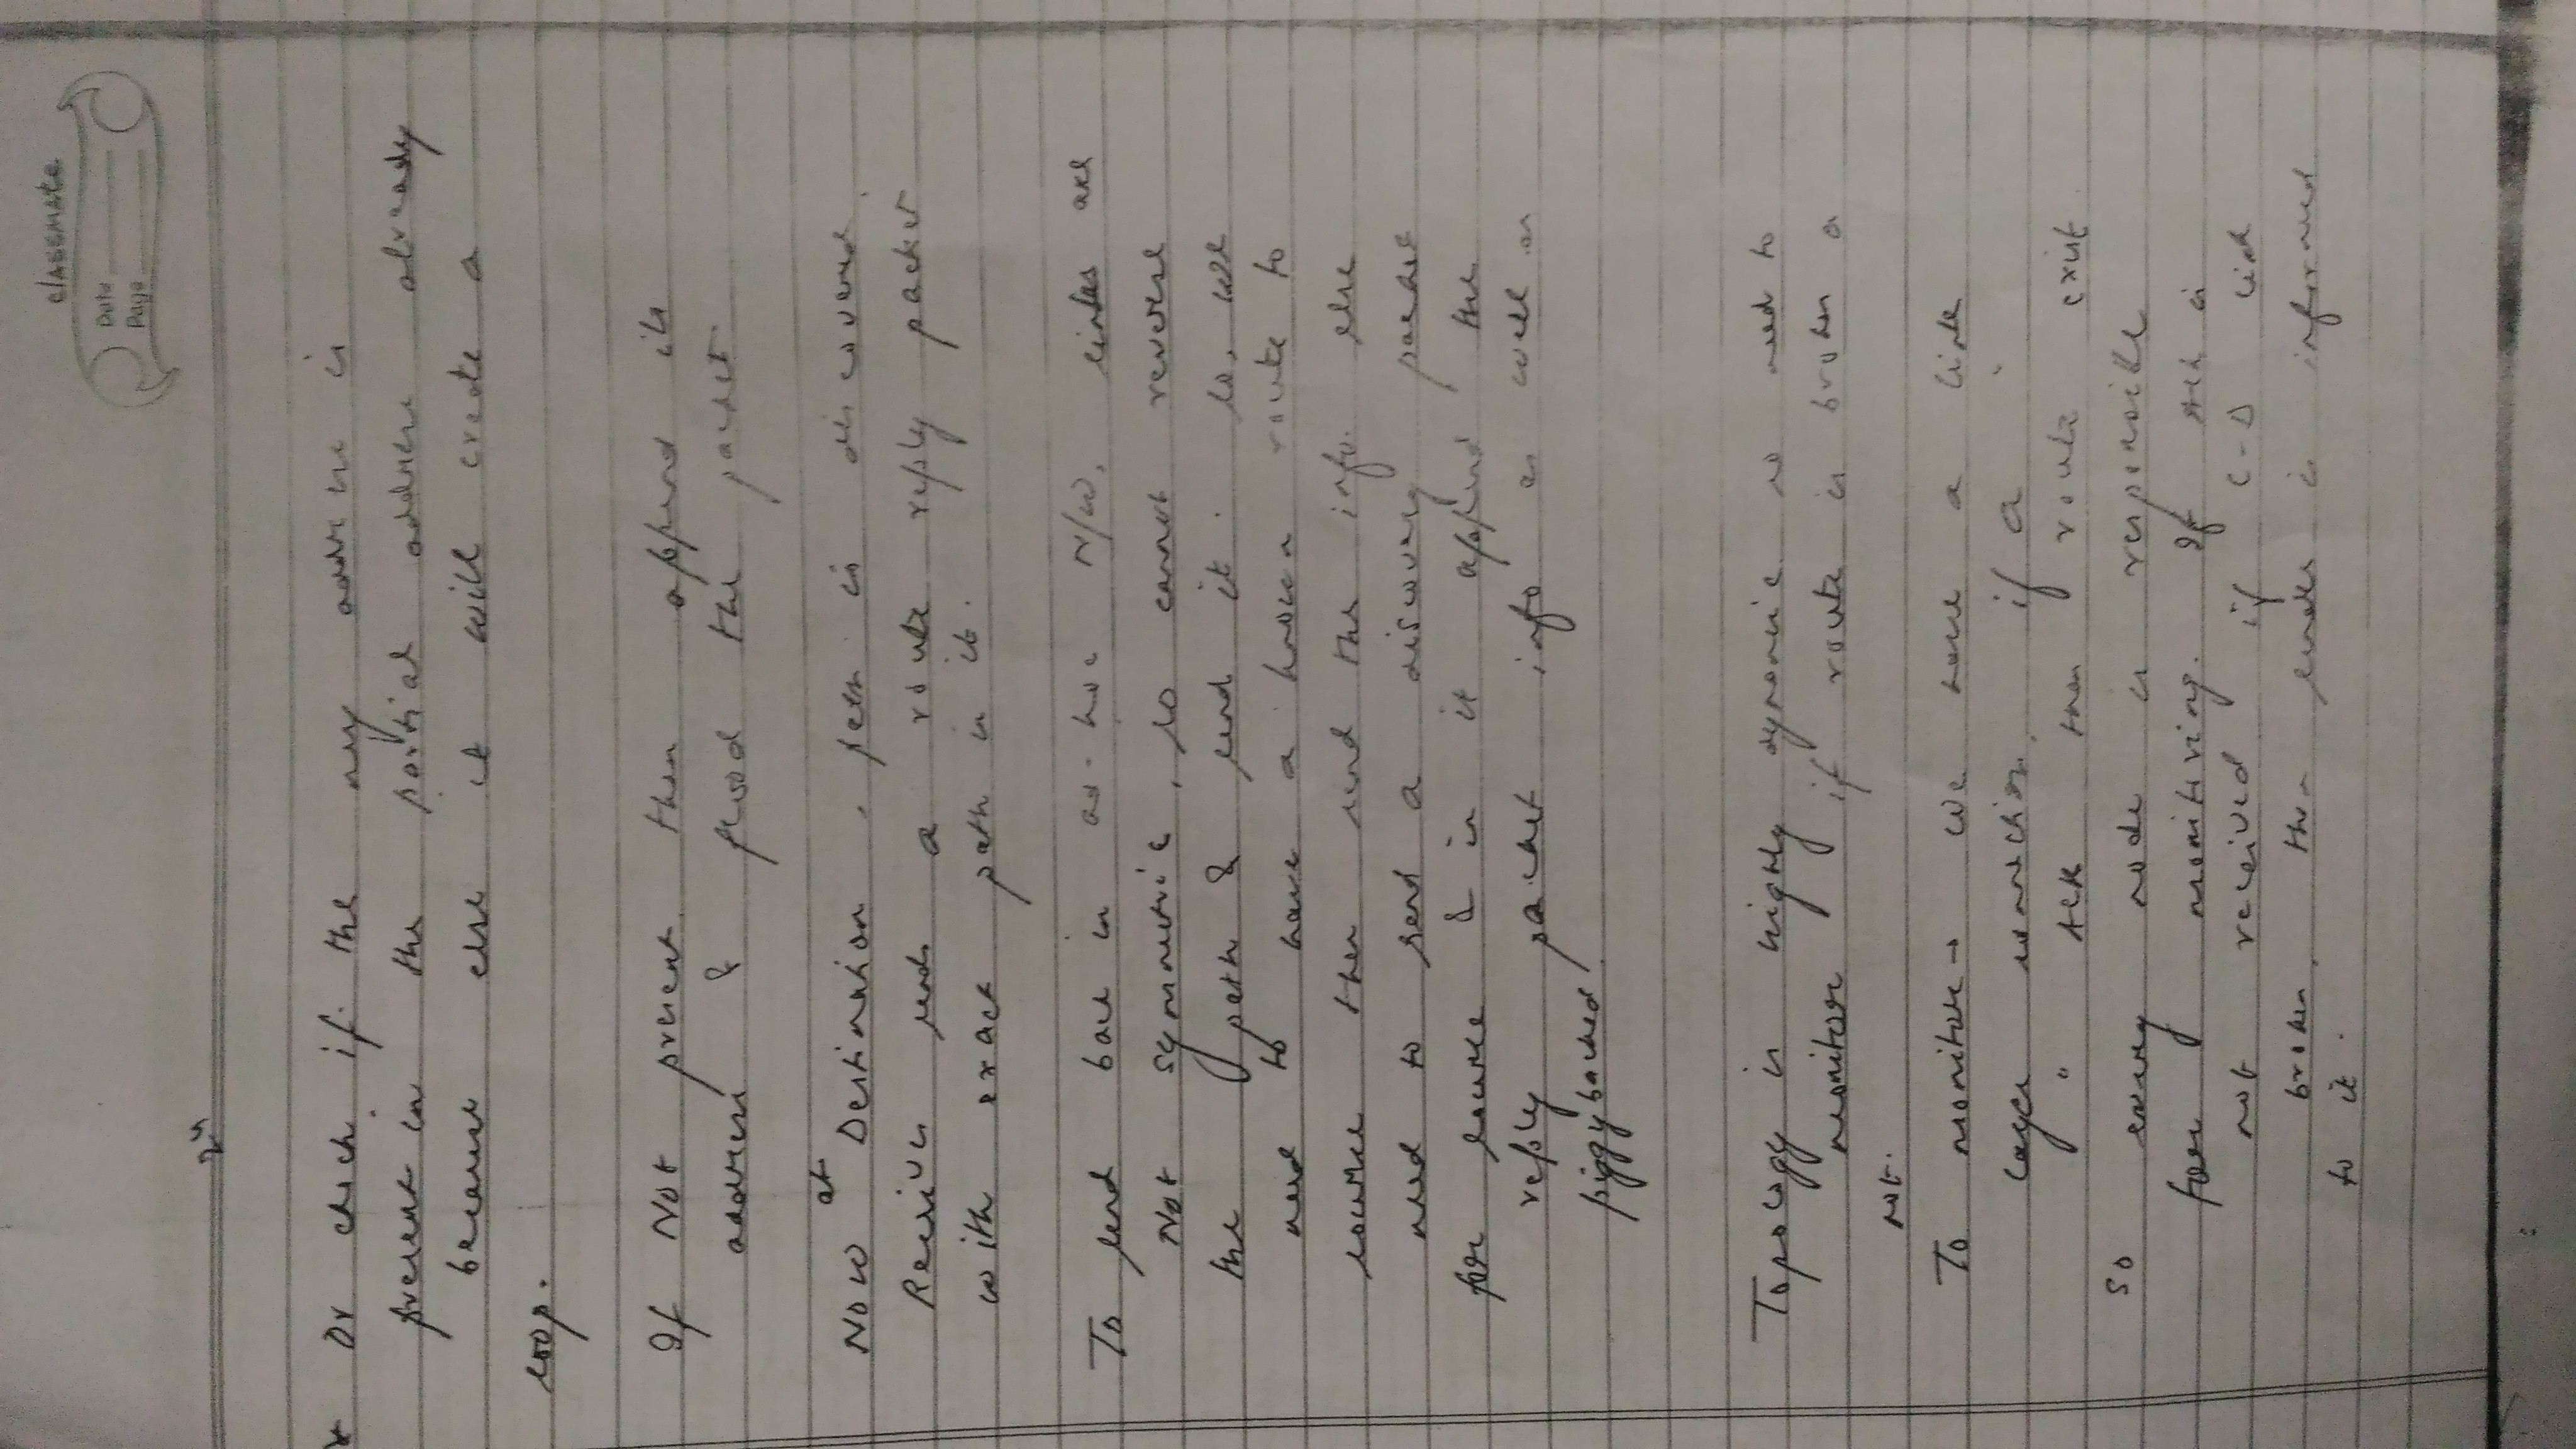 classmate
Date
Page
24
* Or check if the my address is
present in the partial address already
because else it will create a
loop.
If Not present then append its
address & flood the packet
at
Now Destination, path is discovered
Receiver sends a route reply packet
with exact path in it.
To send back in ad-hoc N/W, links are
Not symmetric, so cannot reverse
the path & send it. So, we
need to have a known route to
source then send the info. else
need to send a discovery packet
for source & in it append the
reply packet info as well as
piggybacked.
Topology is highly dynamic so need to
monitor if route is broken or
not.
To monitor → we have a link
layer connection, if a
" Ack then route exist
so every node is responsible
for monitoring. If Ack is
not received if C-D link
broken, then sender is informed
to it.